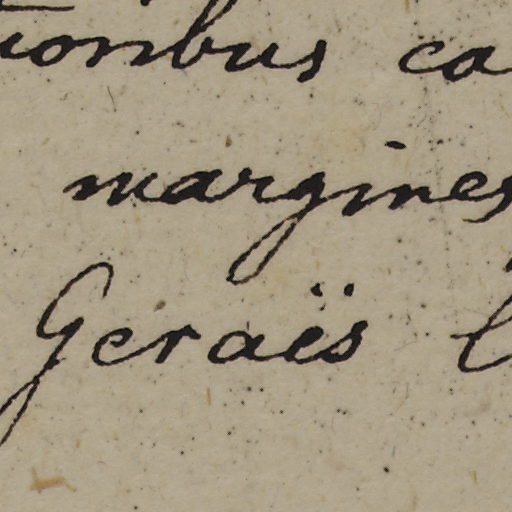 tionibus ca
margines
Geraës l